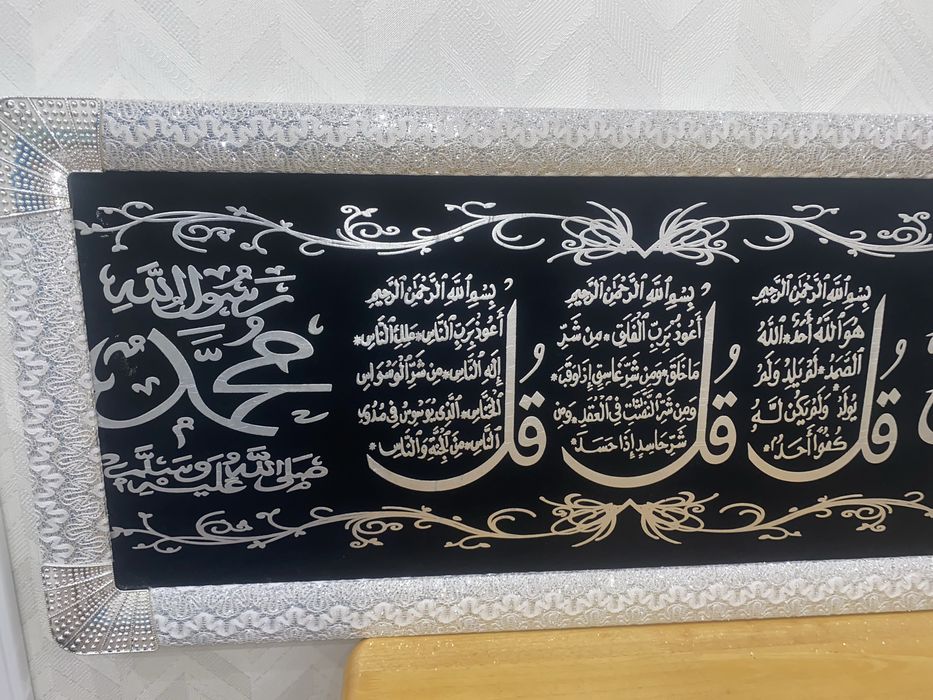 بِسْمِ اللَّهِ الرَّحْمَٰنِ الرَّحِيمِ
قُلْ
هُوَ اللَّهُ أَحَدٌ * اللَّهُ
الصَّمَدُ * لَمْ يَلِدْ وَلَمْ
يُولَدْ * وَلَمْ يَكُن لَّهُ
كُفُوًا أَحَدٌ *
بِسْمِ اللَّهِ الرَّحْمَٰنِ الرَّحِيمِ
قُلْ
أَعُوذُ بِرَبِّ الْفَلَقِ * مِن شَرِّ
مَا خَلَقَ * وَمِن شَرِّ غَاسِقٍ إِذَا وَقَبَ *
وَمِن شَرِّ النَّفَّٰثَٰتِ فِي الْعُقَدِ * وَمِن
شَرِّ حَاسِدٍ إِذَا حَسَدَ *
بِسْمِ اللَّهِ الرَّحْمَٰنِ الرَّحِيمِ
قُلْ
أَعُوذُ بِرَبِّ النَّاسِ * مَلِكِ النَّاسِ *
إِلَٰهِ النَّاسِ * مِن شَرِّ الْوَسْوَاسِ
الْخَنَّاسِ * الَّذِي يُوَسْوِسُ فِي صُدُورِ
النَّاسِ * مِنَ الْجِنَّةِ وَالنَّاسِ *
رَسُولُ اللَّهِ
مُحَمَّد
صَلَّى اللَّهُ عَلَيْهِ وَسَلَّمَ